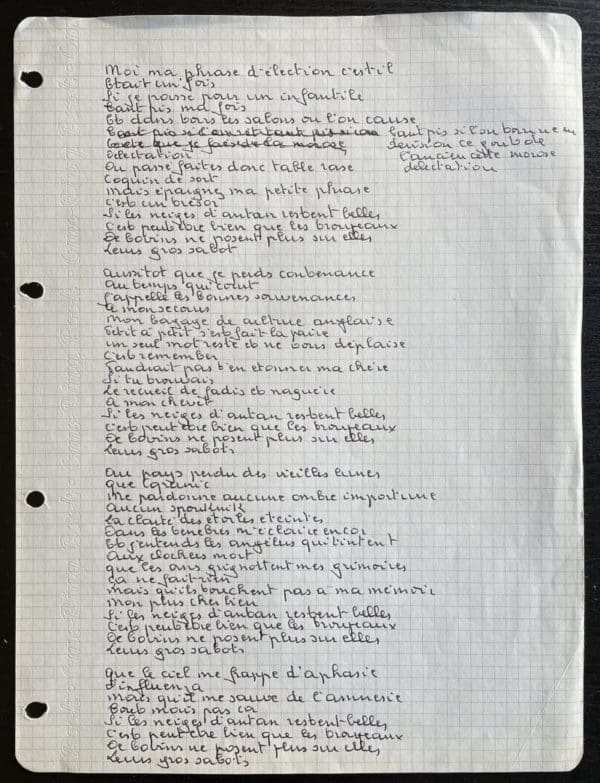 Moi ma phrase d'élection c'est il
Etait un' fois
Si je passe pour un infantile
Tant pis ma fois
Et dans tous les salons ou l'on cause
tant pis si l'on tourne en
derision ce gout de
l'ancien cette morose
délectation
Délectation
Du passé faites donc table rase
Coquin de sort
Mais épargnez ma petite phrase
C'est un trésor
Si les neiges d'antan restent belles
C'est peut être bien que les troupeaux
De bovins ne posent plus sur elles
Leurs gros sabot
Aussitot que je perds contenance
Au temps qui court
J'appelle les bonnes souvenances
A mon secours
Mon bagage de culture anglaise
Petit à petit s'est fait la paire
Un seul mot reste et ne vous déplaise
C'est remember
Faudrait pas t'en etonner ma chère
Si tu trouvais
Le recueil de jadis et naguère
A mon chevet
Si les neiges d'antan restent belles
C'est peut être bien que les troupeaux
De bovins ne posent plus sur elles
Leurs gros sabots
Au pays perdu des vieilles lunes
Que
Me pardonne aucune ombre importune
Aucun spoutnik
La clarté des étoiles éteintes
Dans les ténèbres m'éclaire encor
Et j'entends les angélus qui tintent
Aux clochers mort
Que les ans grignottent mes grimoires
Ca ne fait rien
Mais qu'ils touchent pas a ma mémoir
Mon plus cher lien
Si les neiges d'antan restent belles
C'est peut être bien que les troupeaux
De bovins ne posent plus sur elles
Leurs gros sabots
Que le ciel me frappe d'aphasie
D'influenza
Mais qu'il me sauve de l'amnesie
Tout mais pas ca
Si les neiges d'antan restent belles
C'est peut être bien que les troupeaux
De bovins ne posent plus sur elles
Leurs gros sabots